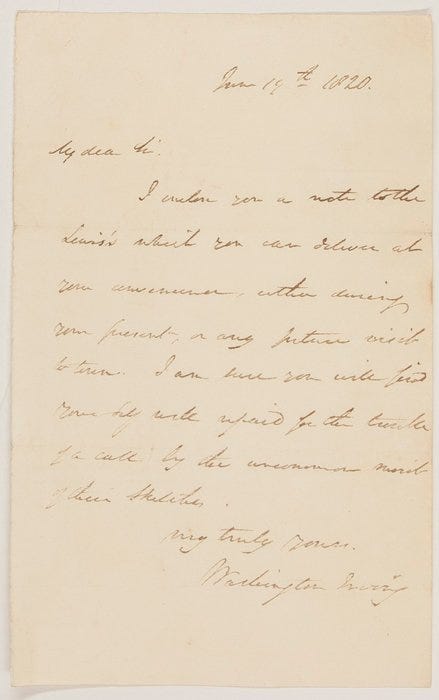 June 19th 1820.
My dear Sir.
I enclose you a note to the
Lewis's which you can deliver at
your convenience, either during
your present, or any future visit
to town. I am sure you will find
yourself well repaid for the trouble
of a call by the uncommon merit
of their sketches.
very truly yours.
Washington Irving